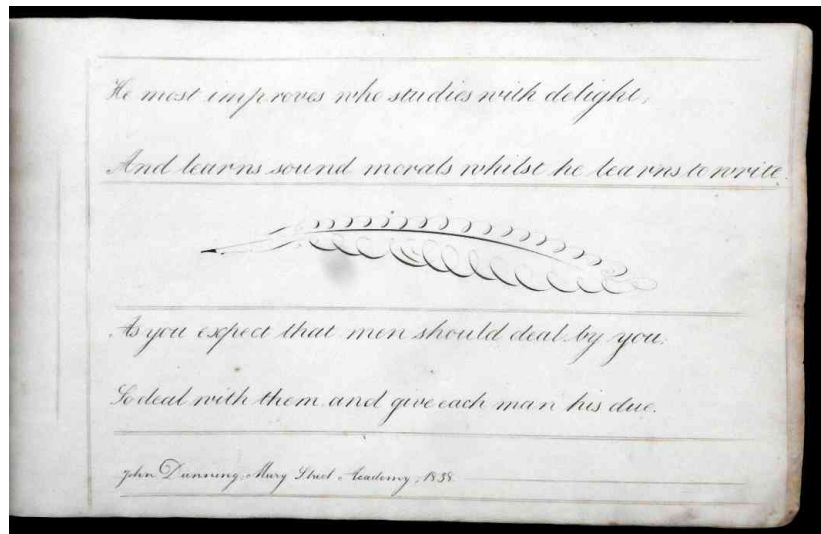 He most improves who studies with delight,
And learns sound morals whilst he learns to write.
As you expect that men should deal by you,
So deal with them and give each man his due.
John Dunning, Mary Street Academy, 1838